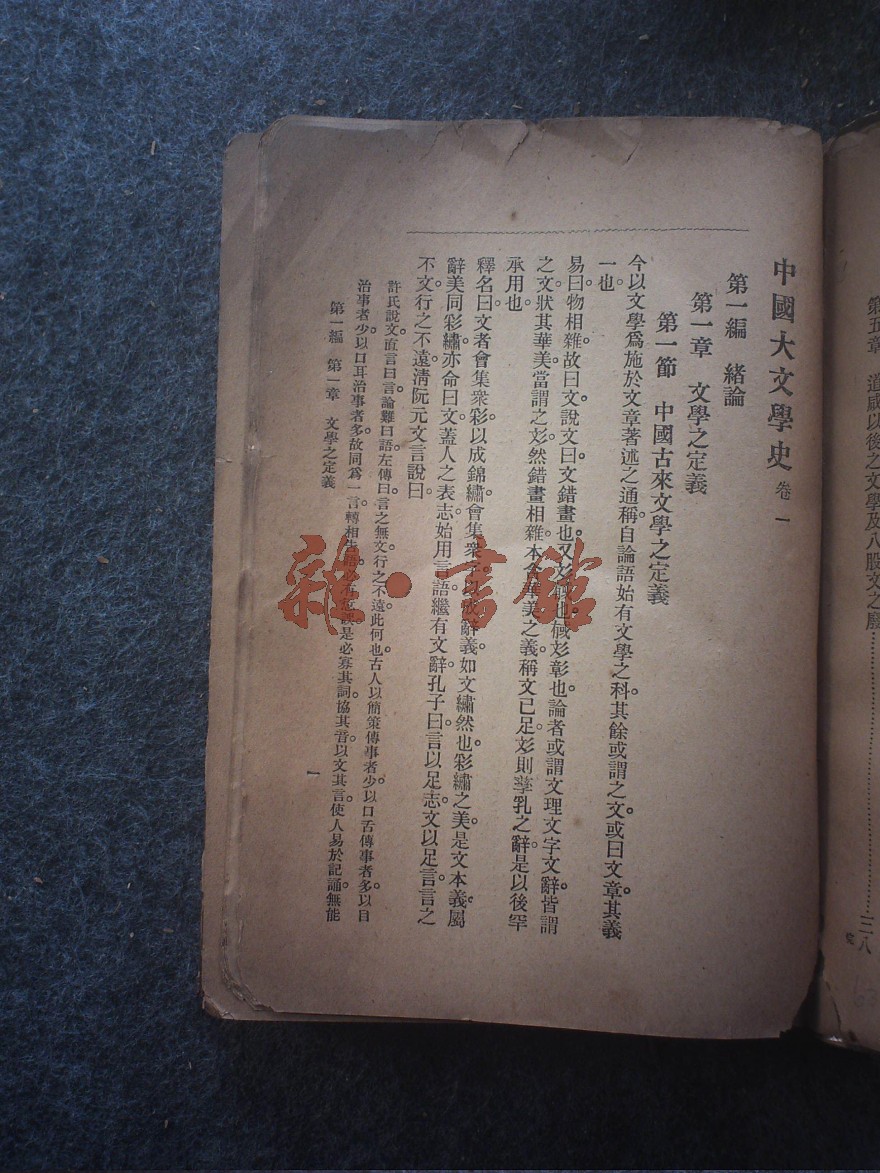 第五章　道咸以後之文學及八股文之廢……三八
中國大文學史 卷一
第一編　緒論
第一章　文學之定義
第一節　中國古來文學之定義
今以文學爲施於文章著述之通稱。自論語始有文學之科。其餘或謂之文。或曰文章。其義
一也。
易曰。物相雜。故曰文。說文曰。文錯畫也。又彣𢒰也。𢒰彣彰也。論者或謂文理文字文辭。皆謂
之文。狀其華美當謂之彣。然錯畫相雜。本含華美之義。稱文已足。彣則孳乳之辭。是以後罕
承用也。
釋名曰。文者會集衆彩。以成錦繡。會集衆字。以成辭義。如文繡然也。彩繡之美。是文本義。屬
辭美同彩繡。亦命曰文。蓋人之表志。始用言語。繼有文辭。孔子曰。言以足志。文以足言。言之
不文。行之不遠。淸阮元文言說曰。
許氏說文。直言曰言。論難曰語。左傳曰。言之無文。行之不遠。此何也。古人以簡策傳事者少。以口舌傳事者多。以目
治事者少。以口耳治事者多。故同爲一言。轉相告語。必有愆誤。是必寡其詞。協其音。以文其言。使人易於記誦。無能
第一編　第一章　文學之定義
一
雜·書館